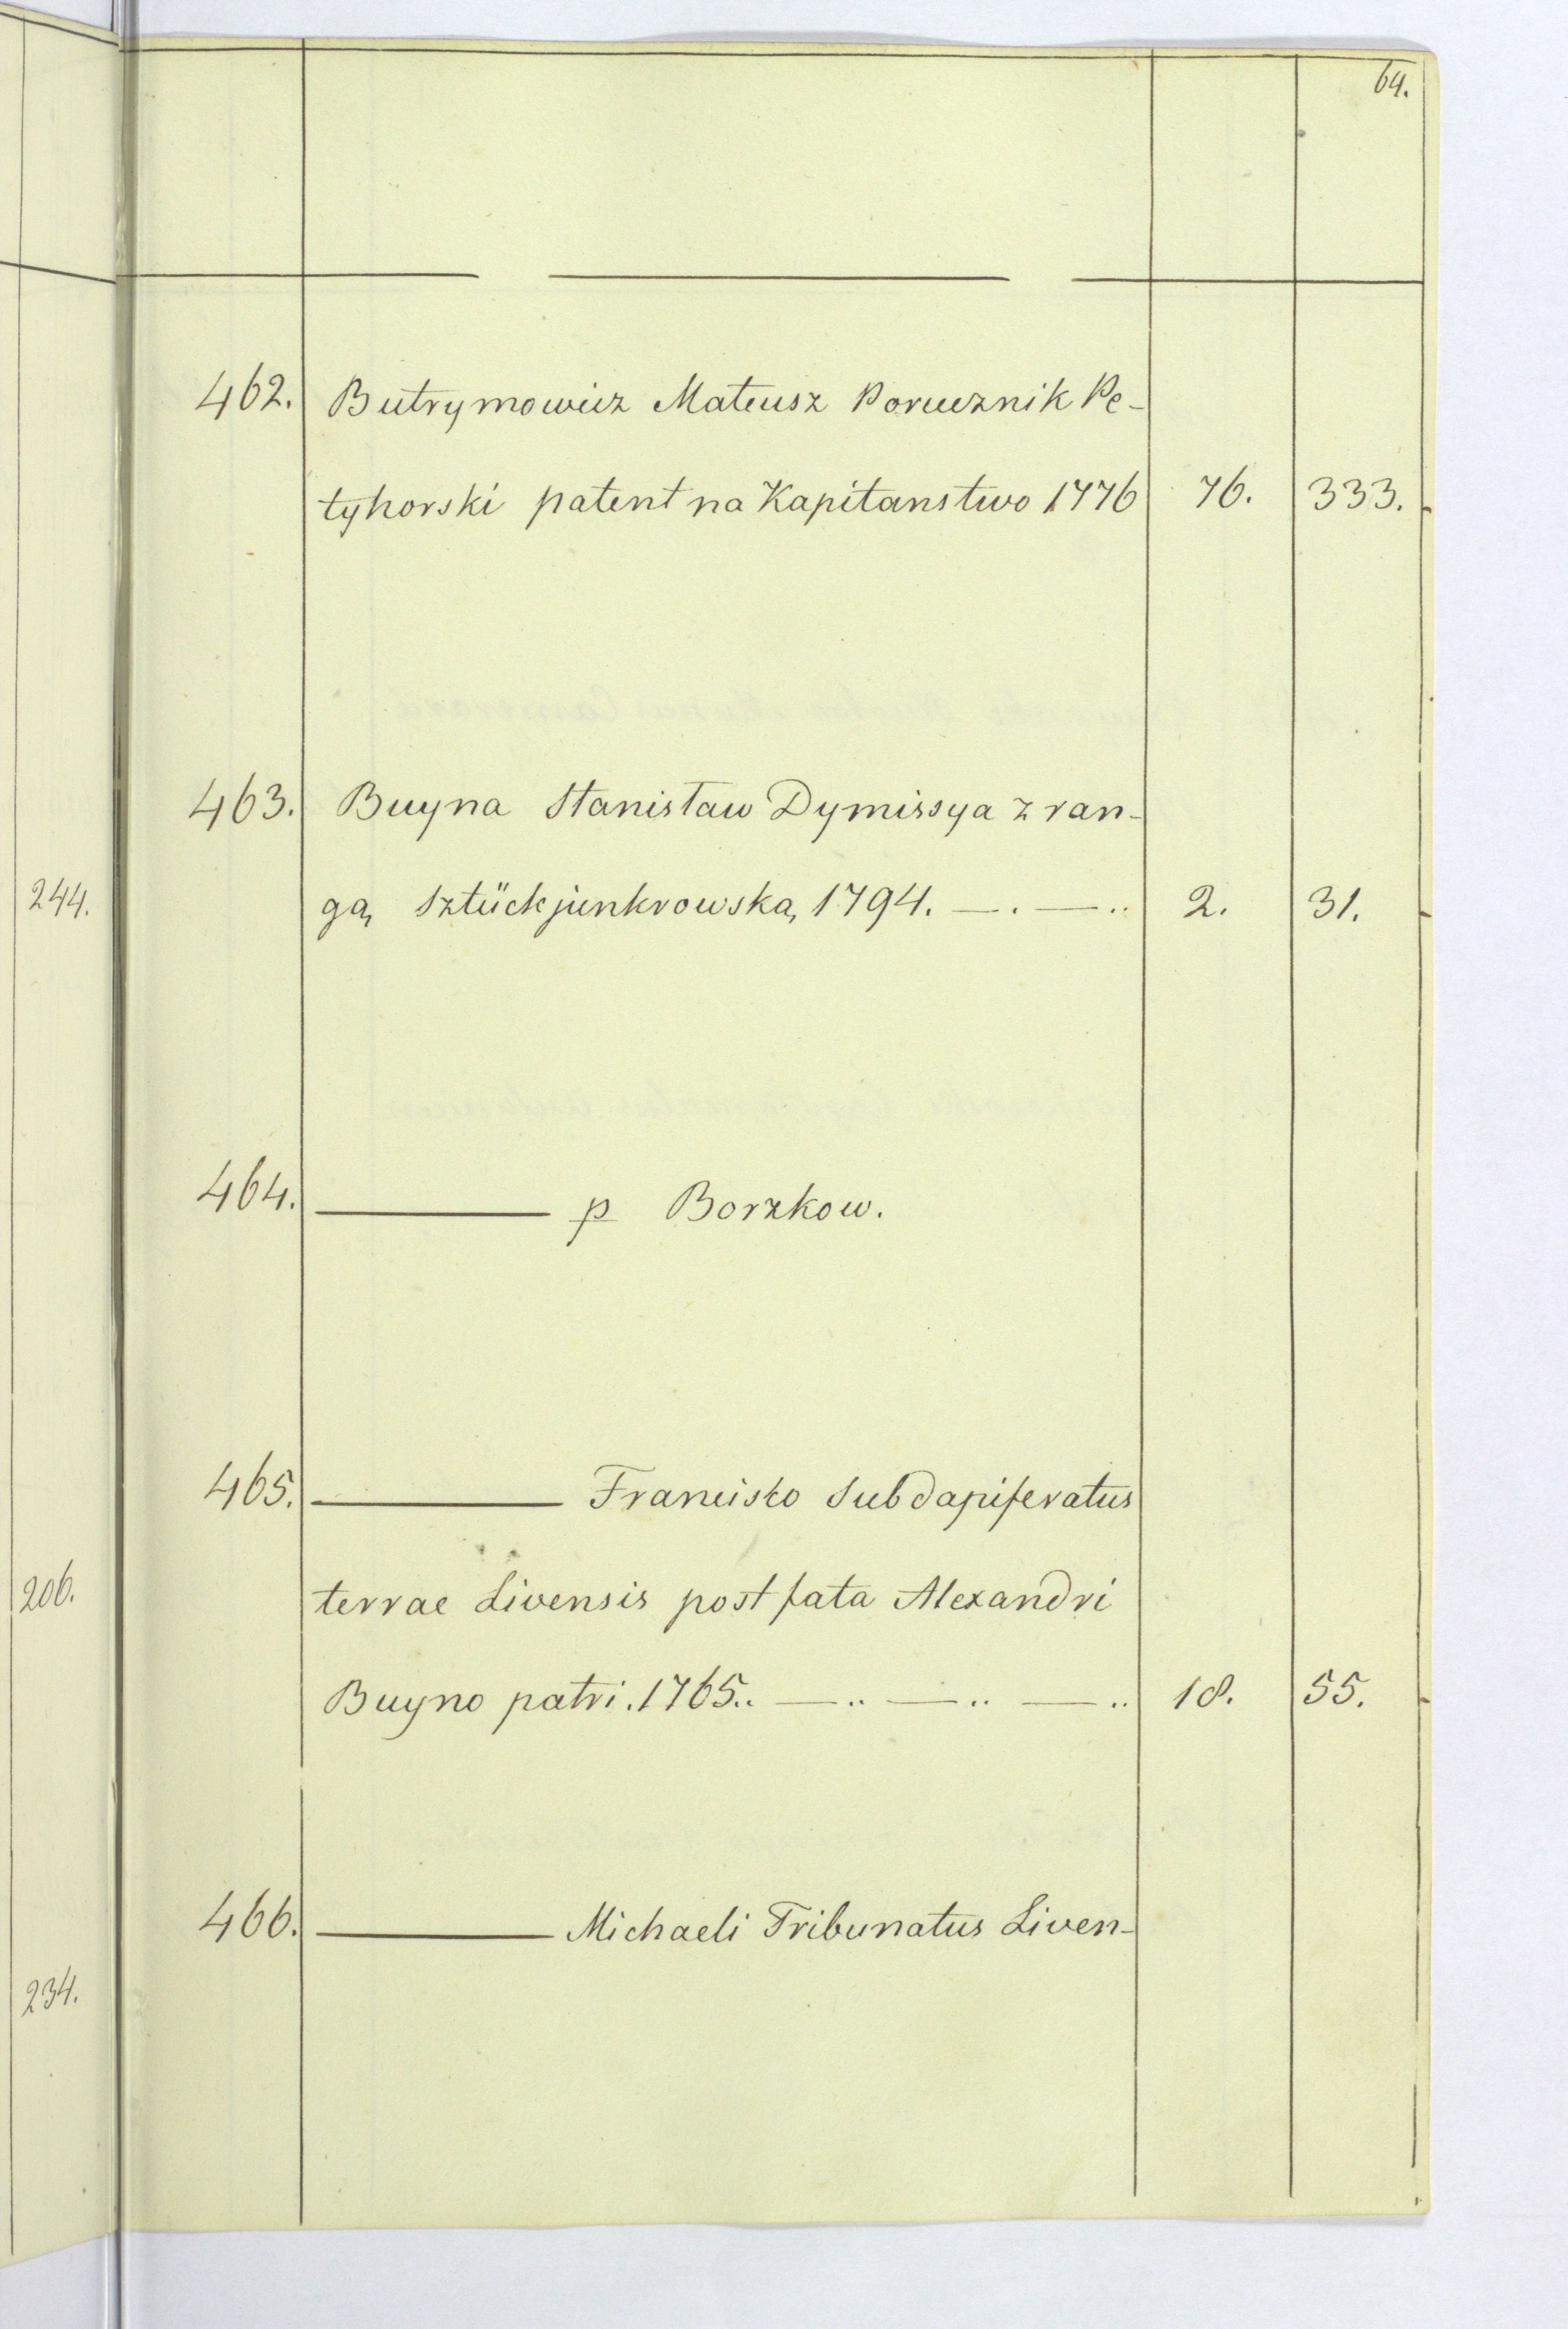 64.
462. Butrymowicz Mateusz Porucznik Pe-
tyhorski patent na Kapitanstwo 1776 76. 333.
463. Buyna Stanisław Dymissya z ran-
gą Sztückjunkrowską 1794. — . — .. 2. 31.
464. ——— p Borzkow.
465. ——— Francisco Subdapiferatus
terrae Livensis post fata Alexandri
Buyno patri. 1765.. — .. — .. — .. 18. 55.
466. ——— Michaeli Tribunatus Liven-
244.
206.
234.